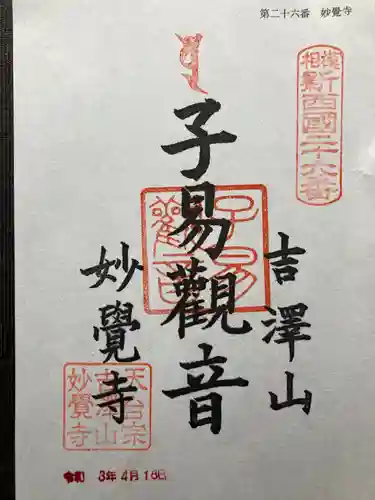 第二十六番 妙覺寺
子易觀音
吉澤山
妙覺寺
新西國二十六番
子易觀音
天台宗
吉澤山
妙覺寺
令和 3年4月18日